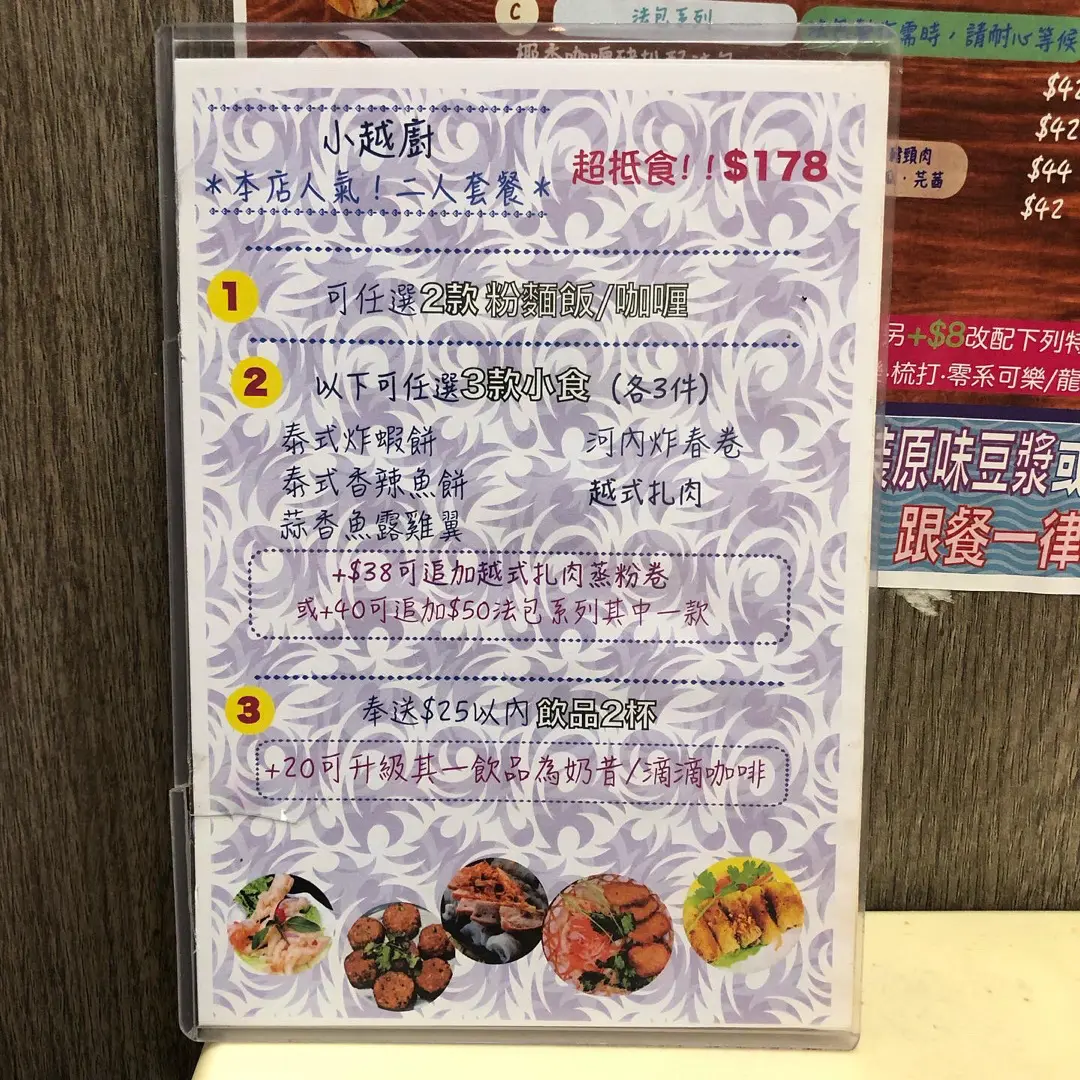 C
法包系列
需時，請耐心等候
小越廚
*本店人氣！二人套餐*
超抵食!!$178
1
可任選2款 粉麵飯/咖喱
2
以下可任選3款小食（各3件）
泰式炸蝦餅
河內炸春卷
泰式香辣魚餅
越式扎肉
蒜香魚露雞翼
+$38可追加越式扎肉蒸粉卷
或+40可追加$50法包系列其中一款
3
奉送$25以內 飲品2杯
+20可升級其一飲品為奶昔/滴滴咖啡
$42
$42
豬頸肉
$44
·芫茜
$42
另+$8改配下列特
·梳打·零系可樂/龍
原味豆漿或
跟餐一律